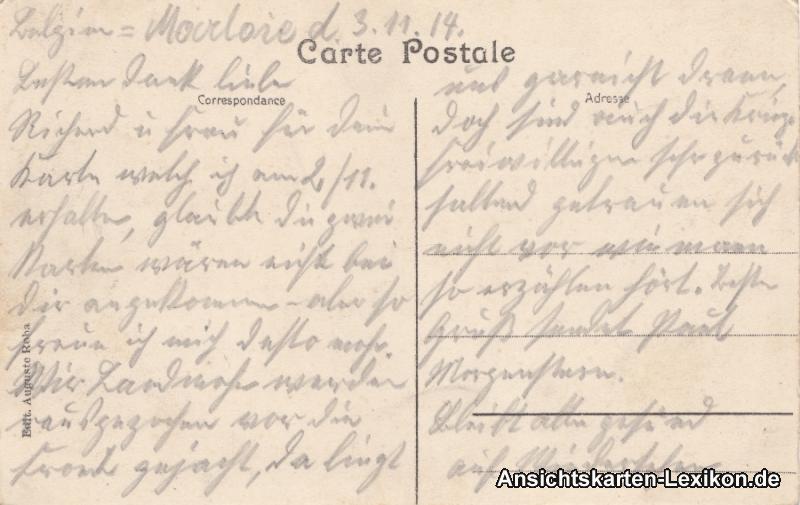 Belgien = Marloie d. 3.11.14.
Carte Postale
Correspondance
Adresse
Besten Dank liebe
Richard u Frau für dein
Karte welch ich am 2./11.
erhalten, glaubte die zwei
Karten wären nicht bei
dir angekommen - aber so
freue ich mich desto mehr.
Wir Landwehr werden
rausgezochen vor die
Front gejacht, da liegt
uns garnicht dran,
doch sind auch die Kriegs-
freiwilligen sehr zurück
haltend getrauen sich
nicht vor wie mann
so erzählen hört. Beste
Gruß sendet Paul
Morgenstern.
Bleibt alle gesund
auf Wiedersehen
Edit. Auguste
Ansichtskarten-Lexikon.de